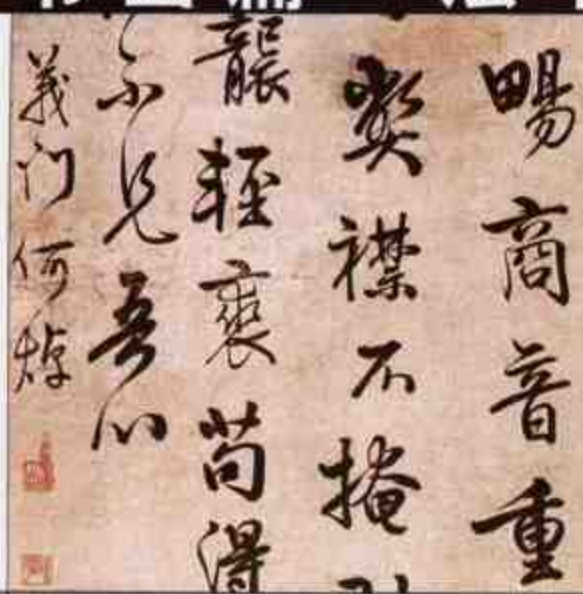 暢商音重
弊襟不掩
襲輕裘苟得
不見吾心
義门何焯